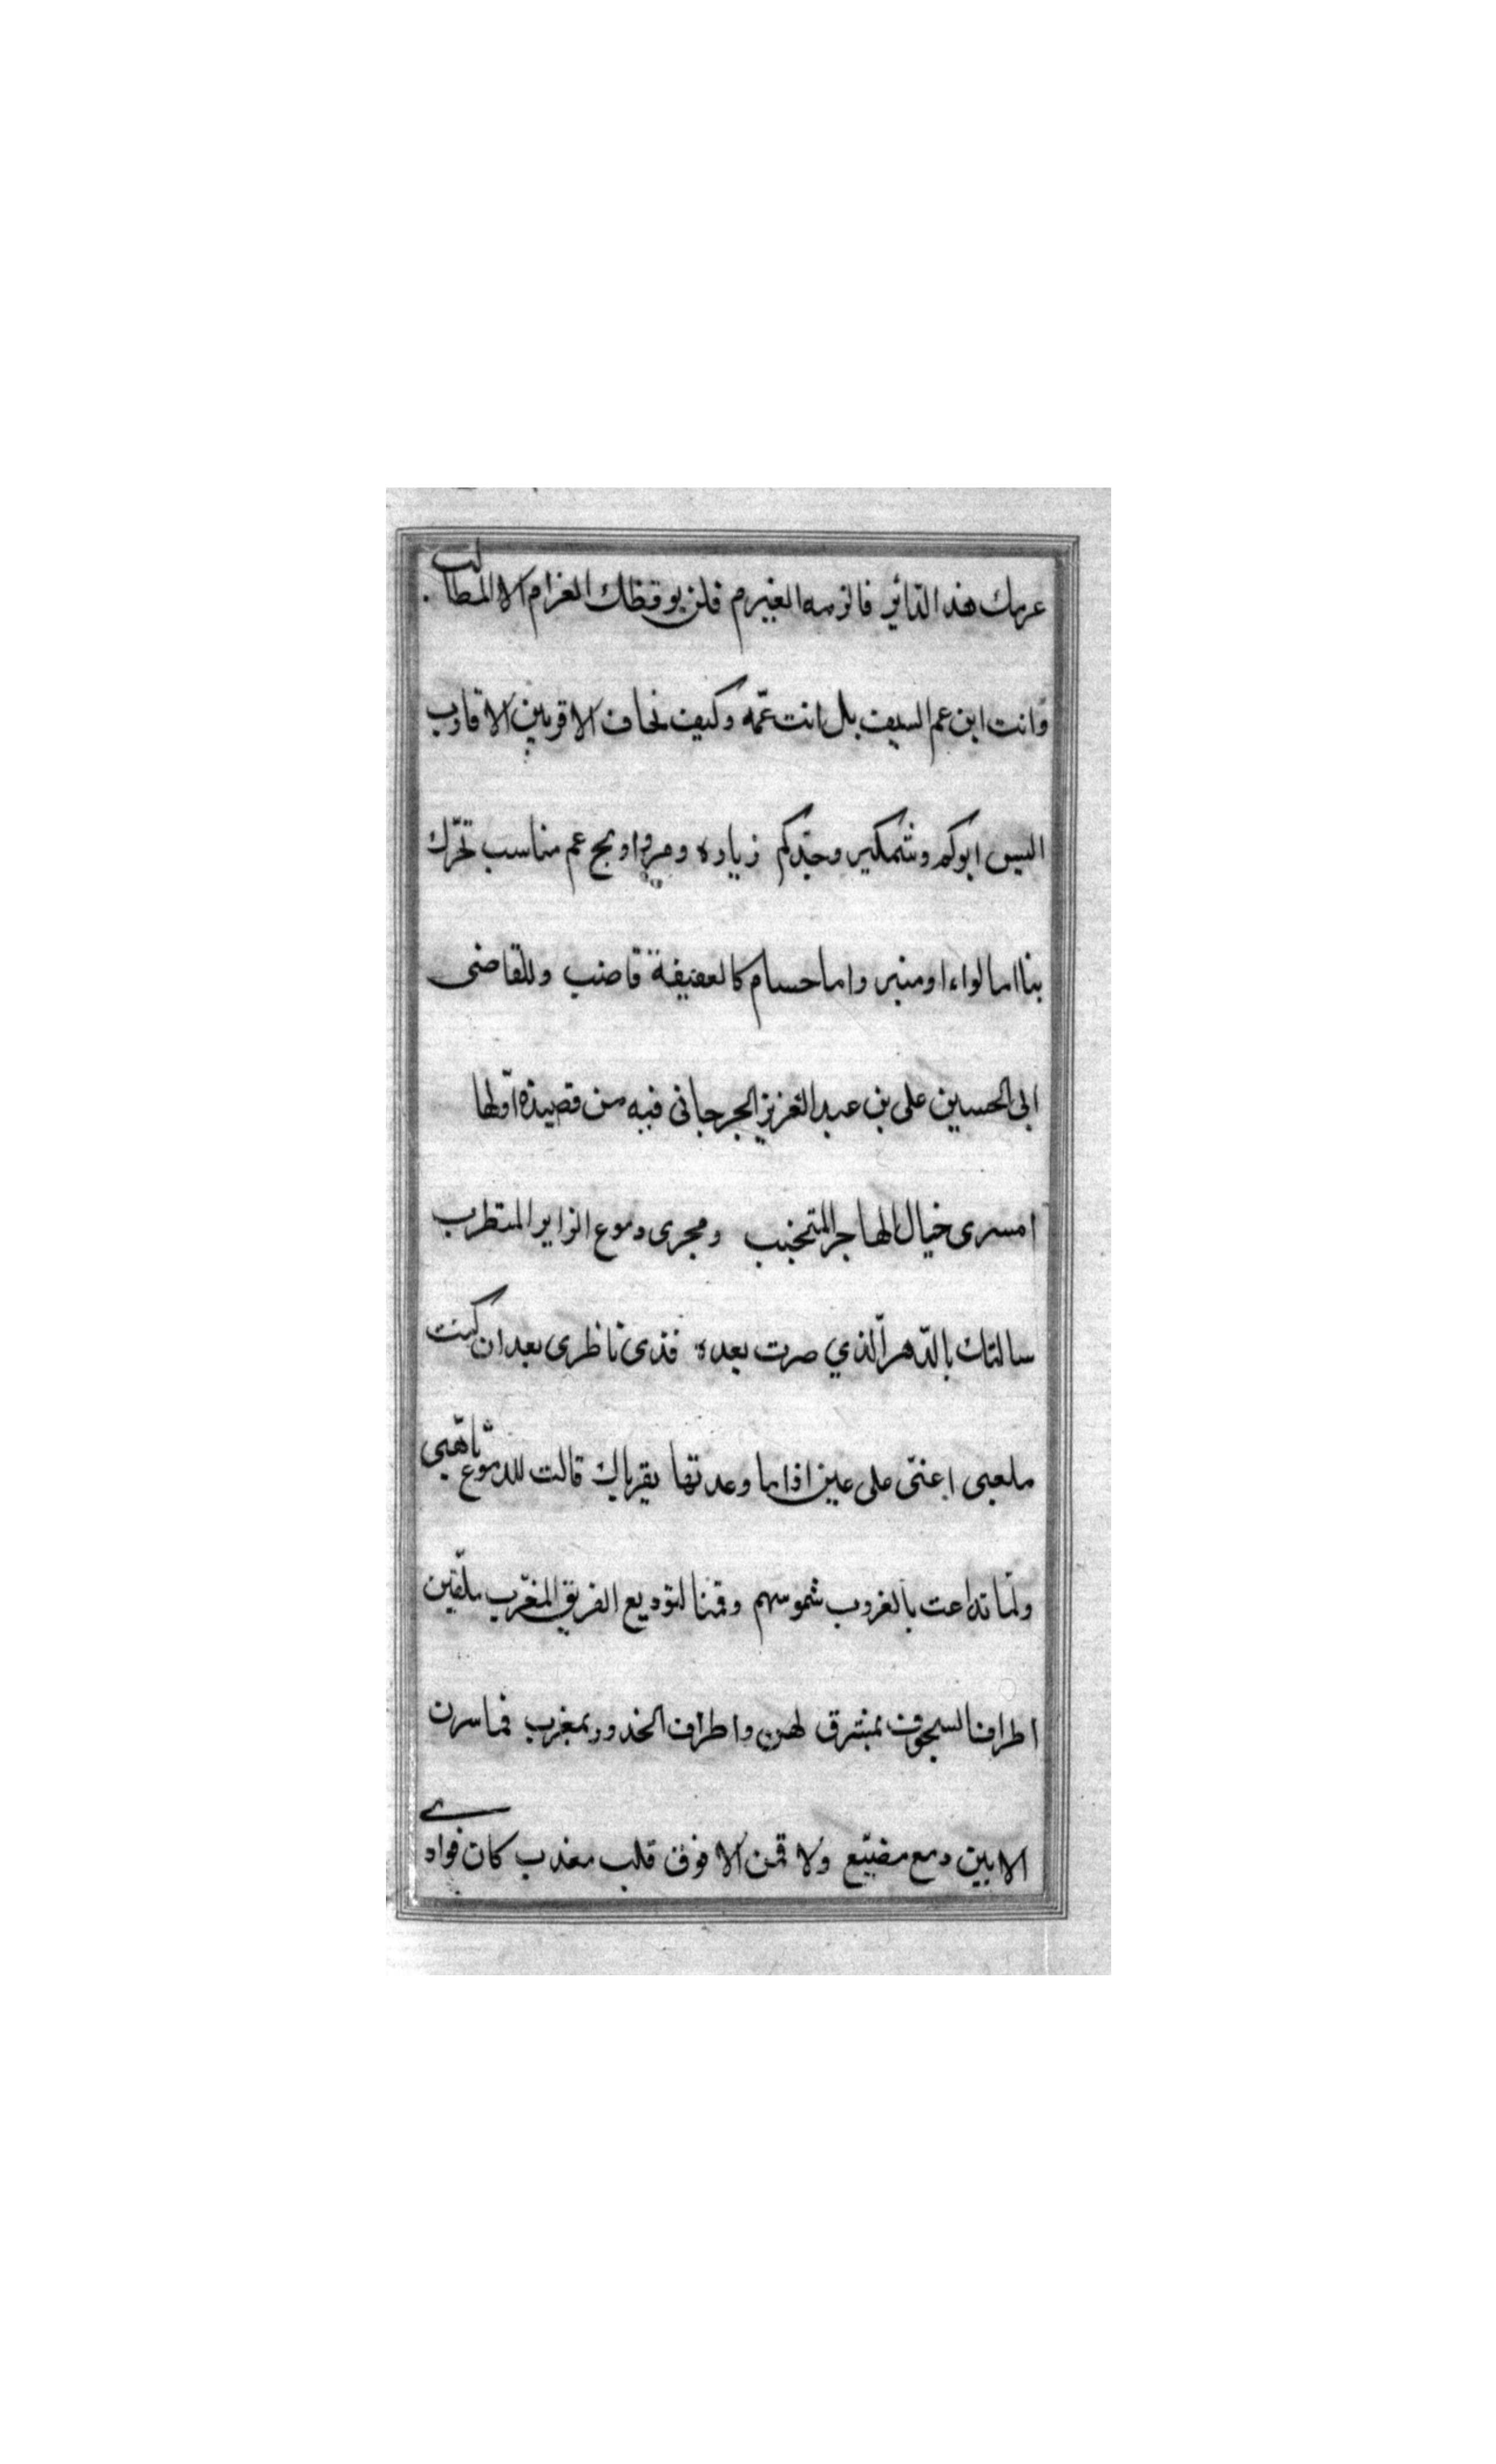 هذا الثائر فالزمه الغيرم فلن يوقظك الغرام الا المطالب
وانت ابن عم السيف بل انت عمّه وكيف نخاف الاقربين الاقارب
اليس ابوكم وشمكير وجدّكم زياره ومرداويج عم مناسب تحرّك
بنا اما لواء او منبر واما حسام كالعقيقة قاضب وللقاضى
ابى الحسين على بن عبد العزيز الجرجانى فيه من قصيدة اوّلها
امسرى خيال الهاجر المتجنب ومجرى دموع الزاير المتطرب
سالتك بالدّهر الّذي صرت بعده قذى ناظرى بعد ان كنت
ملعبى اعنّى على عين اذا ما وعدتها بقربك قالت للدموع تاهّبى
ولمّا تداعت بالغروب شموسهم وقمنا لتوديع الفريق المغرّب تلقّين
اطراف السجوف بمشرق لهن واطراف الخدور بمغرب فما سرن
الا بين دمع مضيّع ولا قمن الا فوق قلب معذب كان فوادے